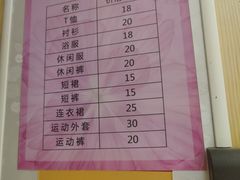 名称
T恤 18
衬衫 20
浴服 18
休闲服 20
休闲裤 20
短裙 15
短裤 15
连衣裙 25
运动外套 30
运动裤 20